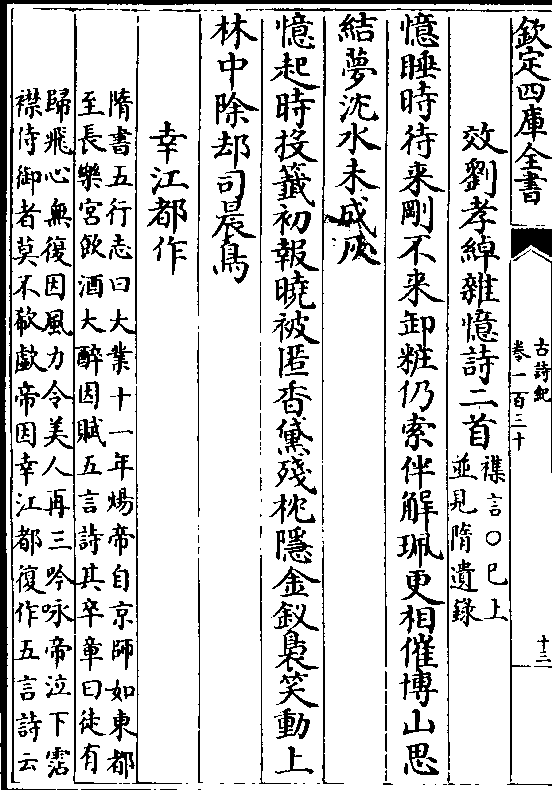 欽定四庫全書
古詩紀
卷一百三十
十三
效劉孝綽雜憶詩二首
襍言○已上
並見隋遺錄
憶睡時待来剛不来卸粧仍索伴解珮更相催博山思
結夢沈水未成灰
憶起時投籤初報曉被匿香黛殘枕隱金釵裊笑動上
林中除却司晨鳥
幸江都作
隋書五行志曰大業十一年煬帝自京師如東都
至長樂宮飲酒大醉因賦五言詩其卒章曰徒有
歸飛心無復因風力令美人再三吟咏帝泣下霑
襟侍御者莫不欷歔帝因幸江都復作五言詩云